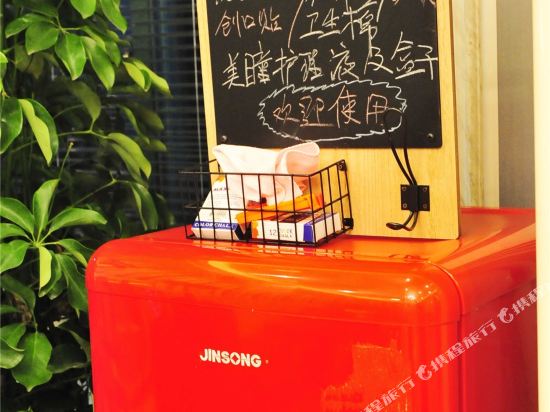 创口贴/卫生棉/
美瞳护理液及盒子
欢迎使用
COLOR CHAL
12
JINSONG
携程旅行
携程旅行